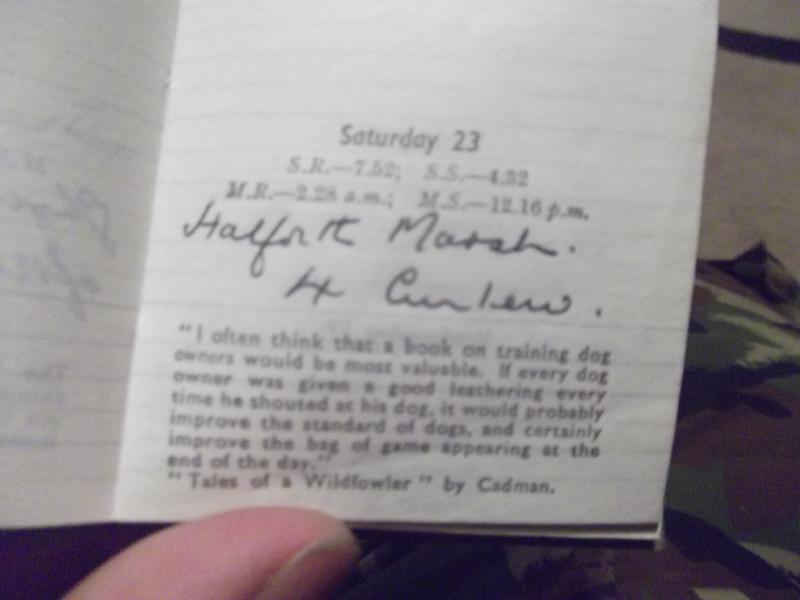 Saturday 23
S.R.—7.52; S.S.—4.32
M.R.—2.28 a.m.; M.S.—12.16 p.m.
Marsh.
4 Curlew.
"I often think that a book on training dog
owners would be most valuable. If every dog
owner was given a good leathering every
time he shouted at his dog, it would probably
improve the standard of dogs, and certainly
improve the bag of game appearing at the
end of the day."
"Tales of a Wildfowler" by Cadman.